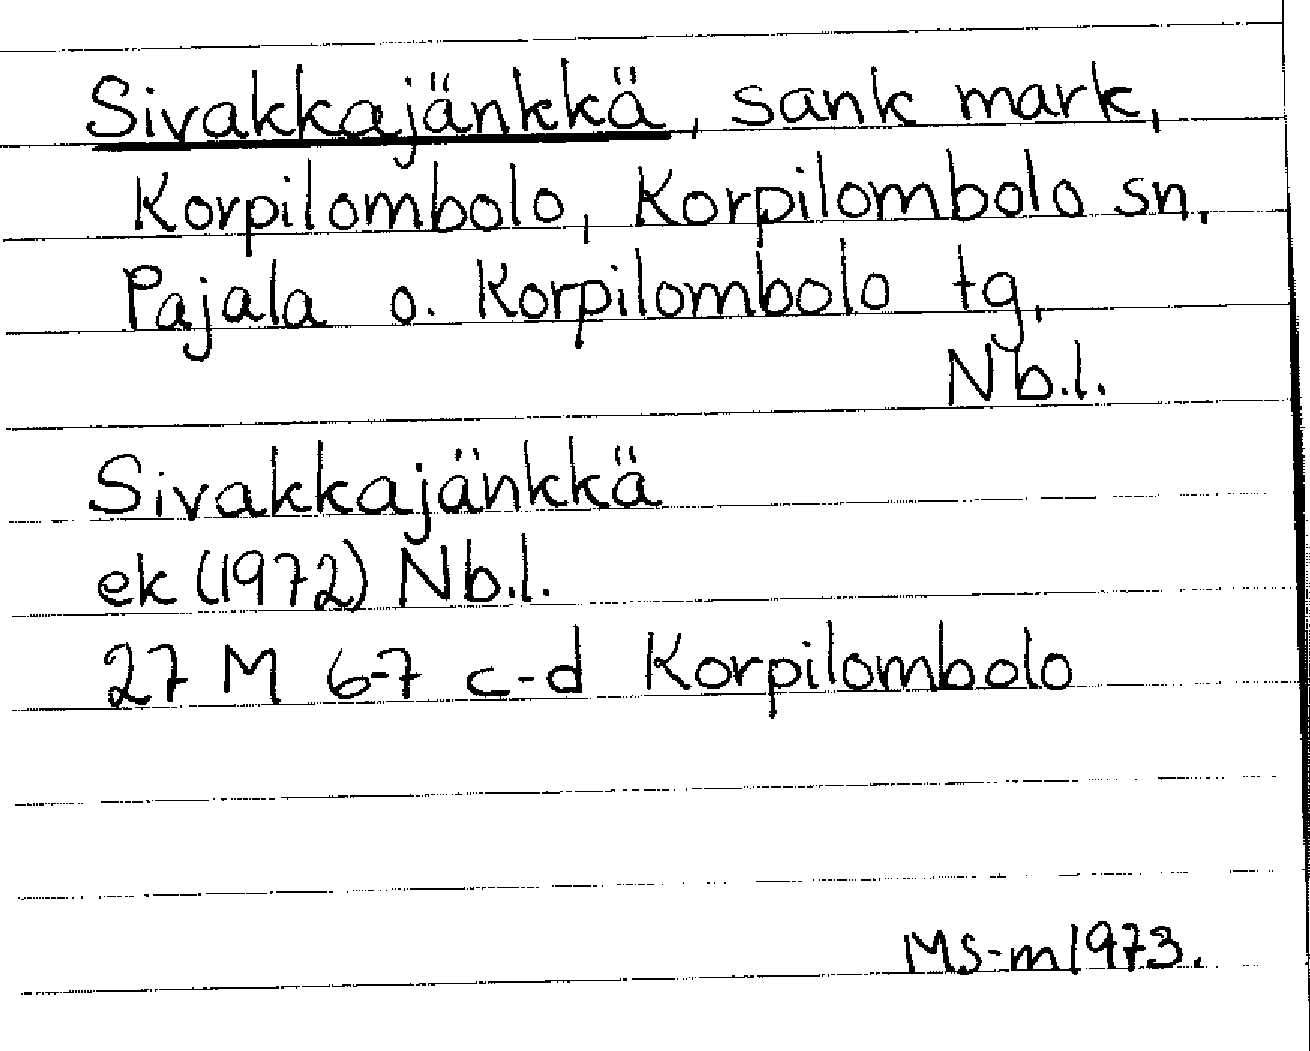 Sivakkajänkkä, sank mark,
Korpilombolo, Korpilombolo sn,
Pajala o. Korpilombolo tg,
Nb.l.
Sivakkajänkkä
ek (1972) Nb.l.
27 M 6-7 c-d Korpilombolo
MS-m1973.